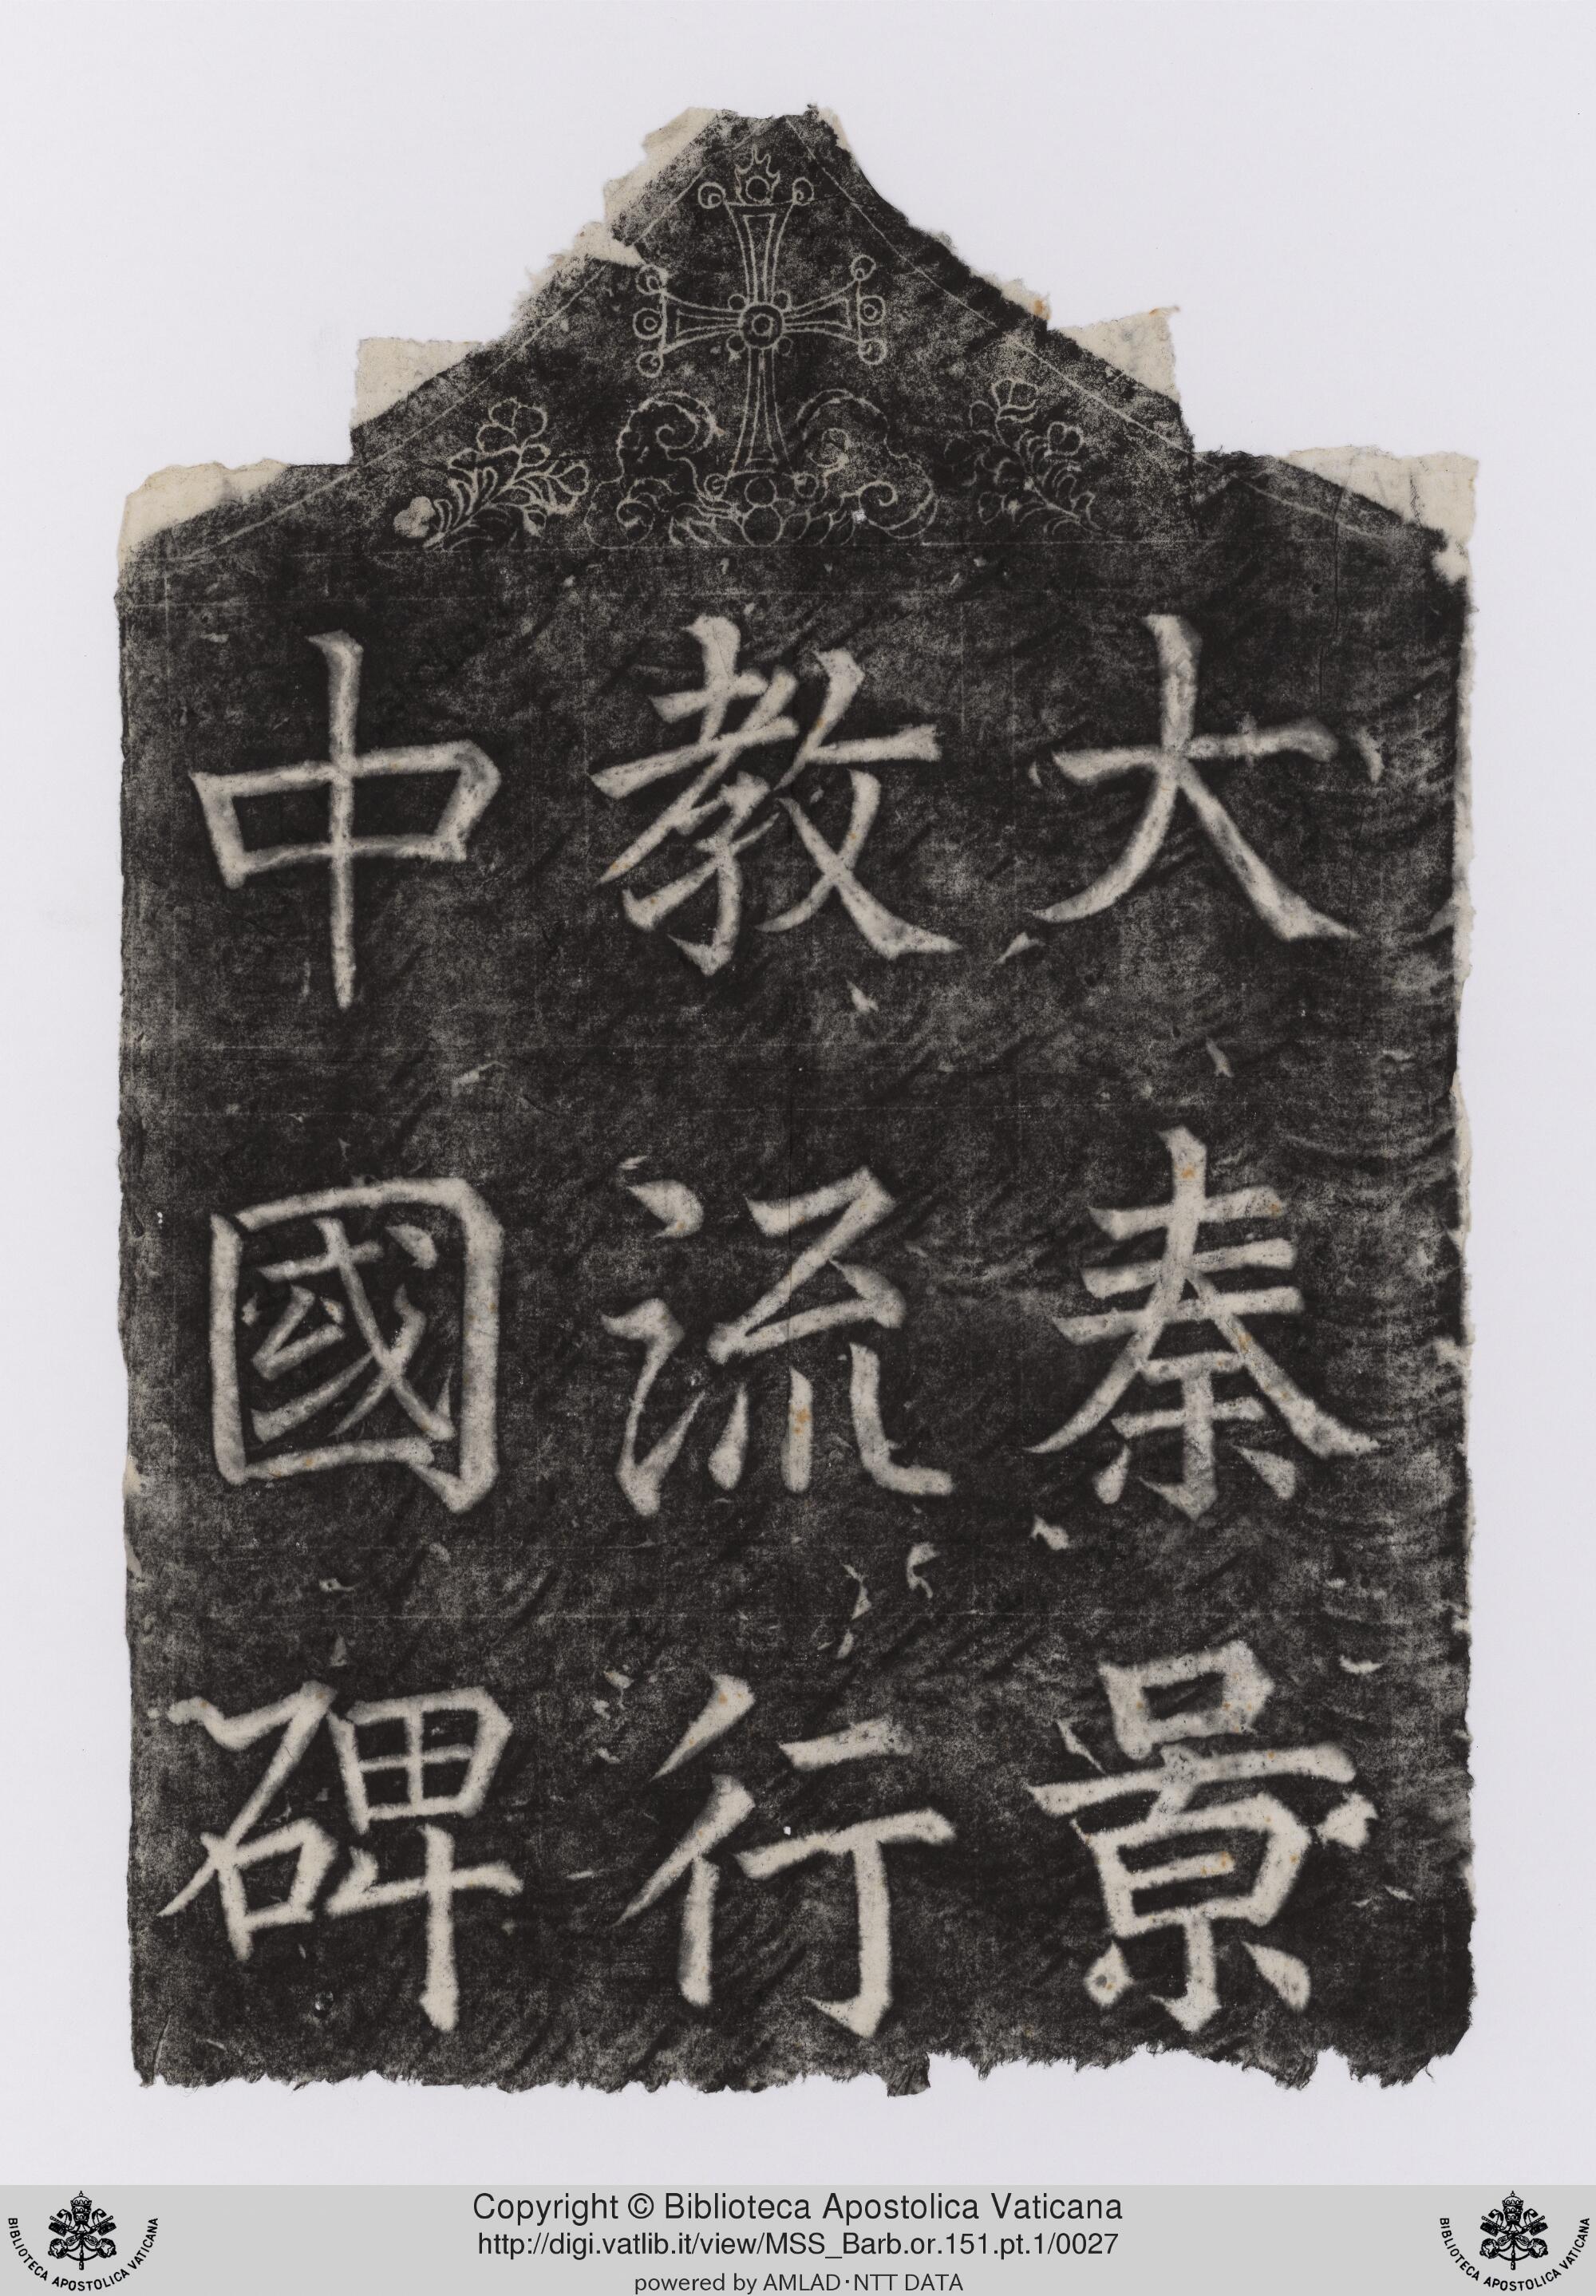 大秦景
教流行
中國碑
Copyright © Biblioteca Apostolica Vaticana
http://digi.vatlib.it/view/MSS_Barb.or.151.pt.1/0027
powered by AMLAD·NTT DATA
BIBLIOTECA APOSTOLICA VATICANA
BIBLIOTECA APOSTOLICA VATICANA